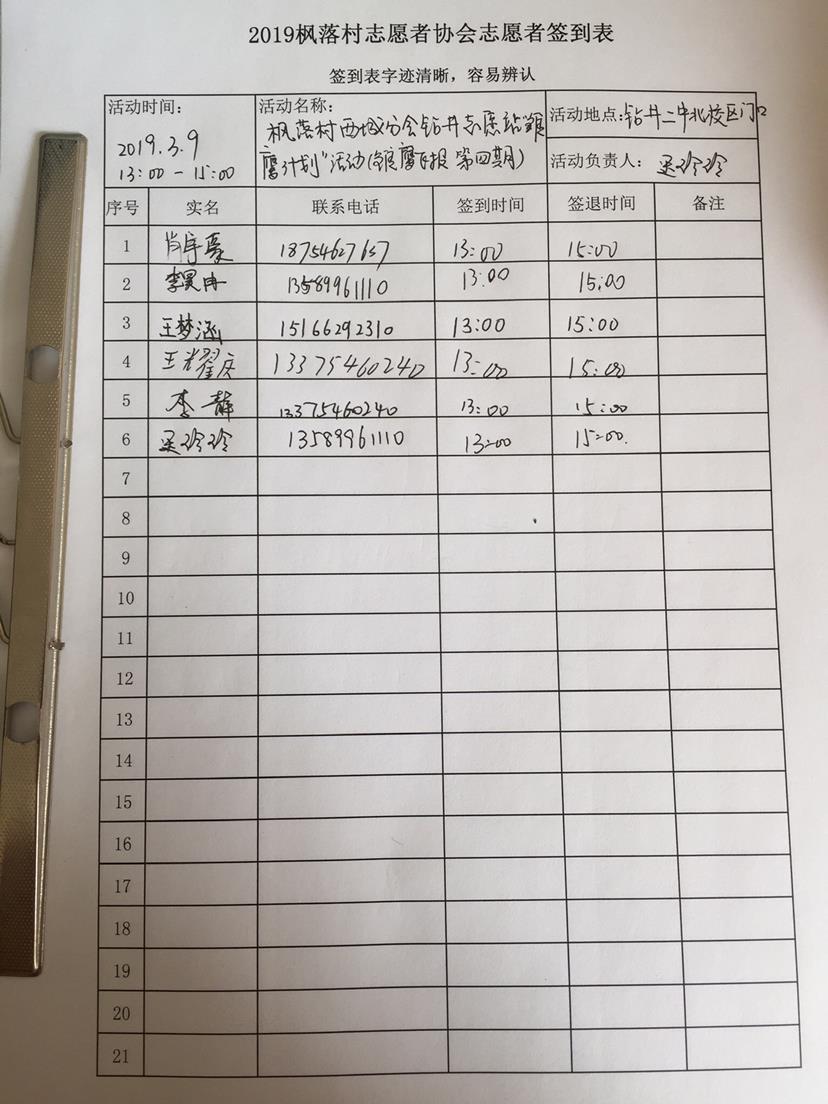 2019枫落村志愿者协会志愿者签到表
签到表字迹清晰，容易辨认
活动时间：
2019.3.9
13:00-15:00
活动名称：
枫落村西城分会钻井志愿站"雏
鹰计划"活动(雏鹰飞报 第四期)
活动地点：钻井二中北校区门口
活动负责人：吴玲玲
序号 实名 联系电话 签到时间 签退时间 备注
1 肖宇豪 18754627657 13:00 15:00
2 李昊冉 13589961110 13:00 15:00
3 王梦涵 15166292310 13:00 15:00
4 王耀庆 13375460240 13:00 15:00
5 李静 13375460240 13:00 15:00
6 吴玲玲 13589961110 13:00 15:00.
7
8
9
10
11
12
13
14
15
16
17
18
19
20
21